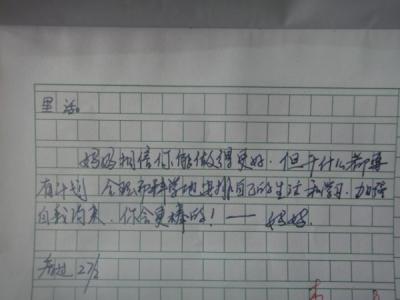 里 活。
妈妈相信你能做得更好，但干什么都要
有计划 合理和科学地安排自己的生活和学习，加强
自我约束，你会更棒的！—— 妈妈